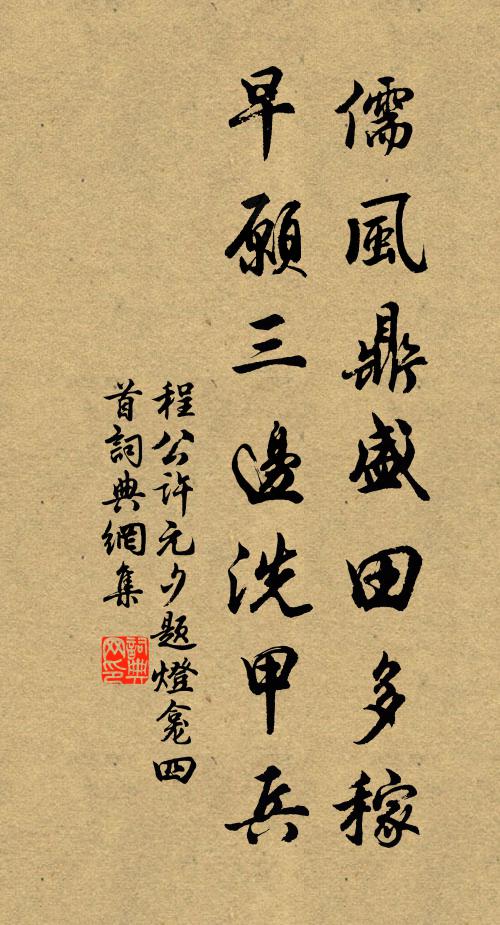 儒風鼎盛田多稼
早願三邊洗甲兵
程公許元夕題燈龕四
首詞典網集
詞典
网印